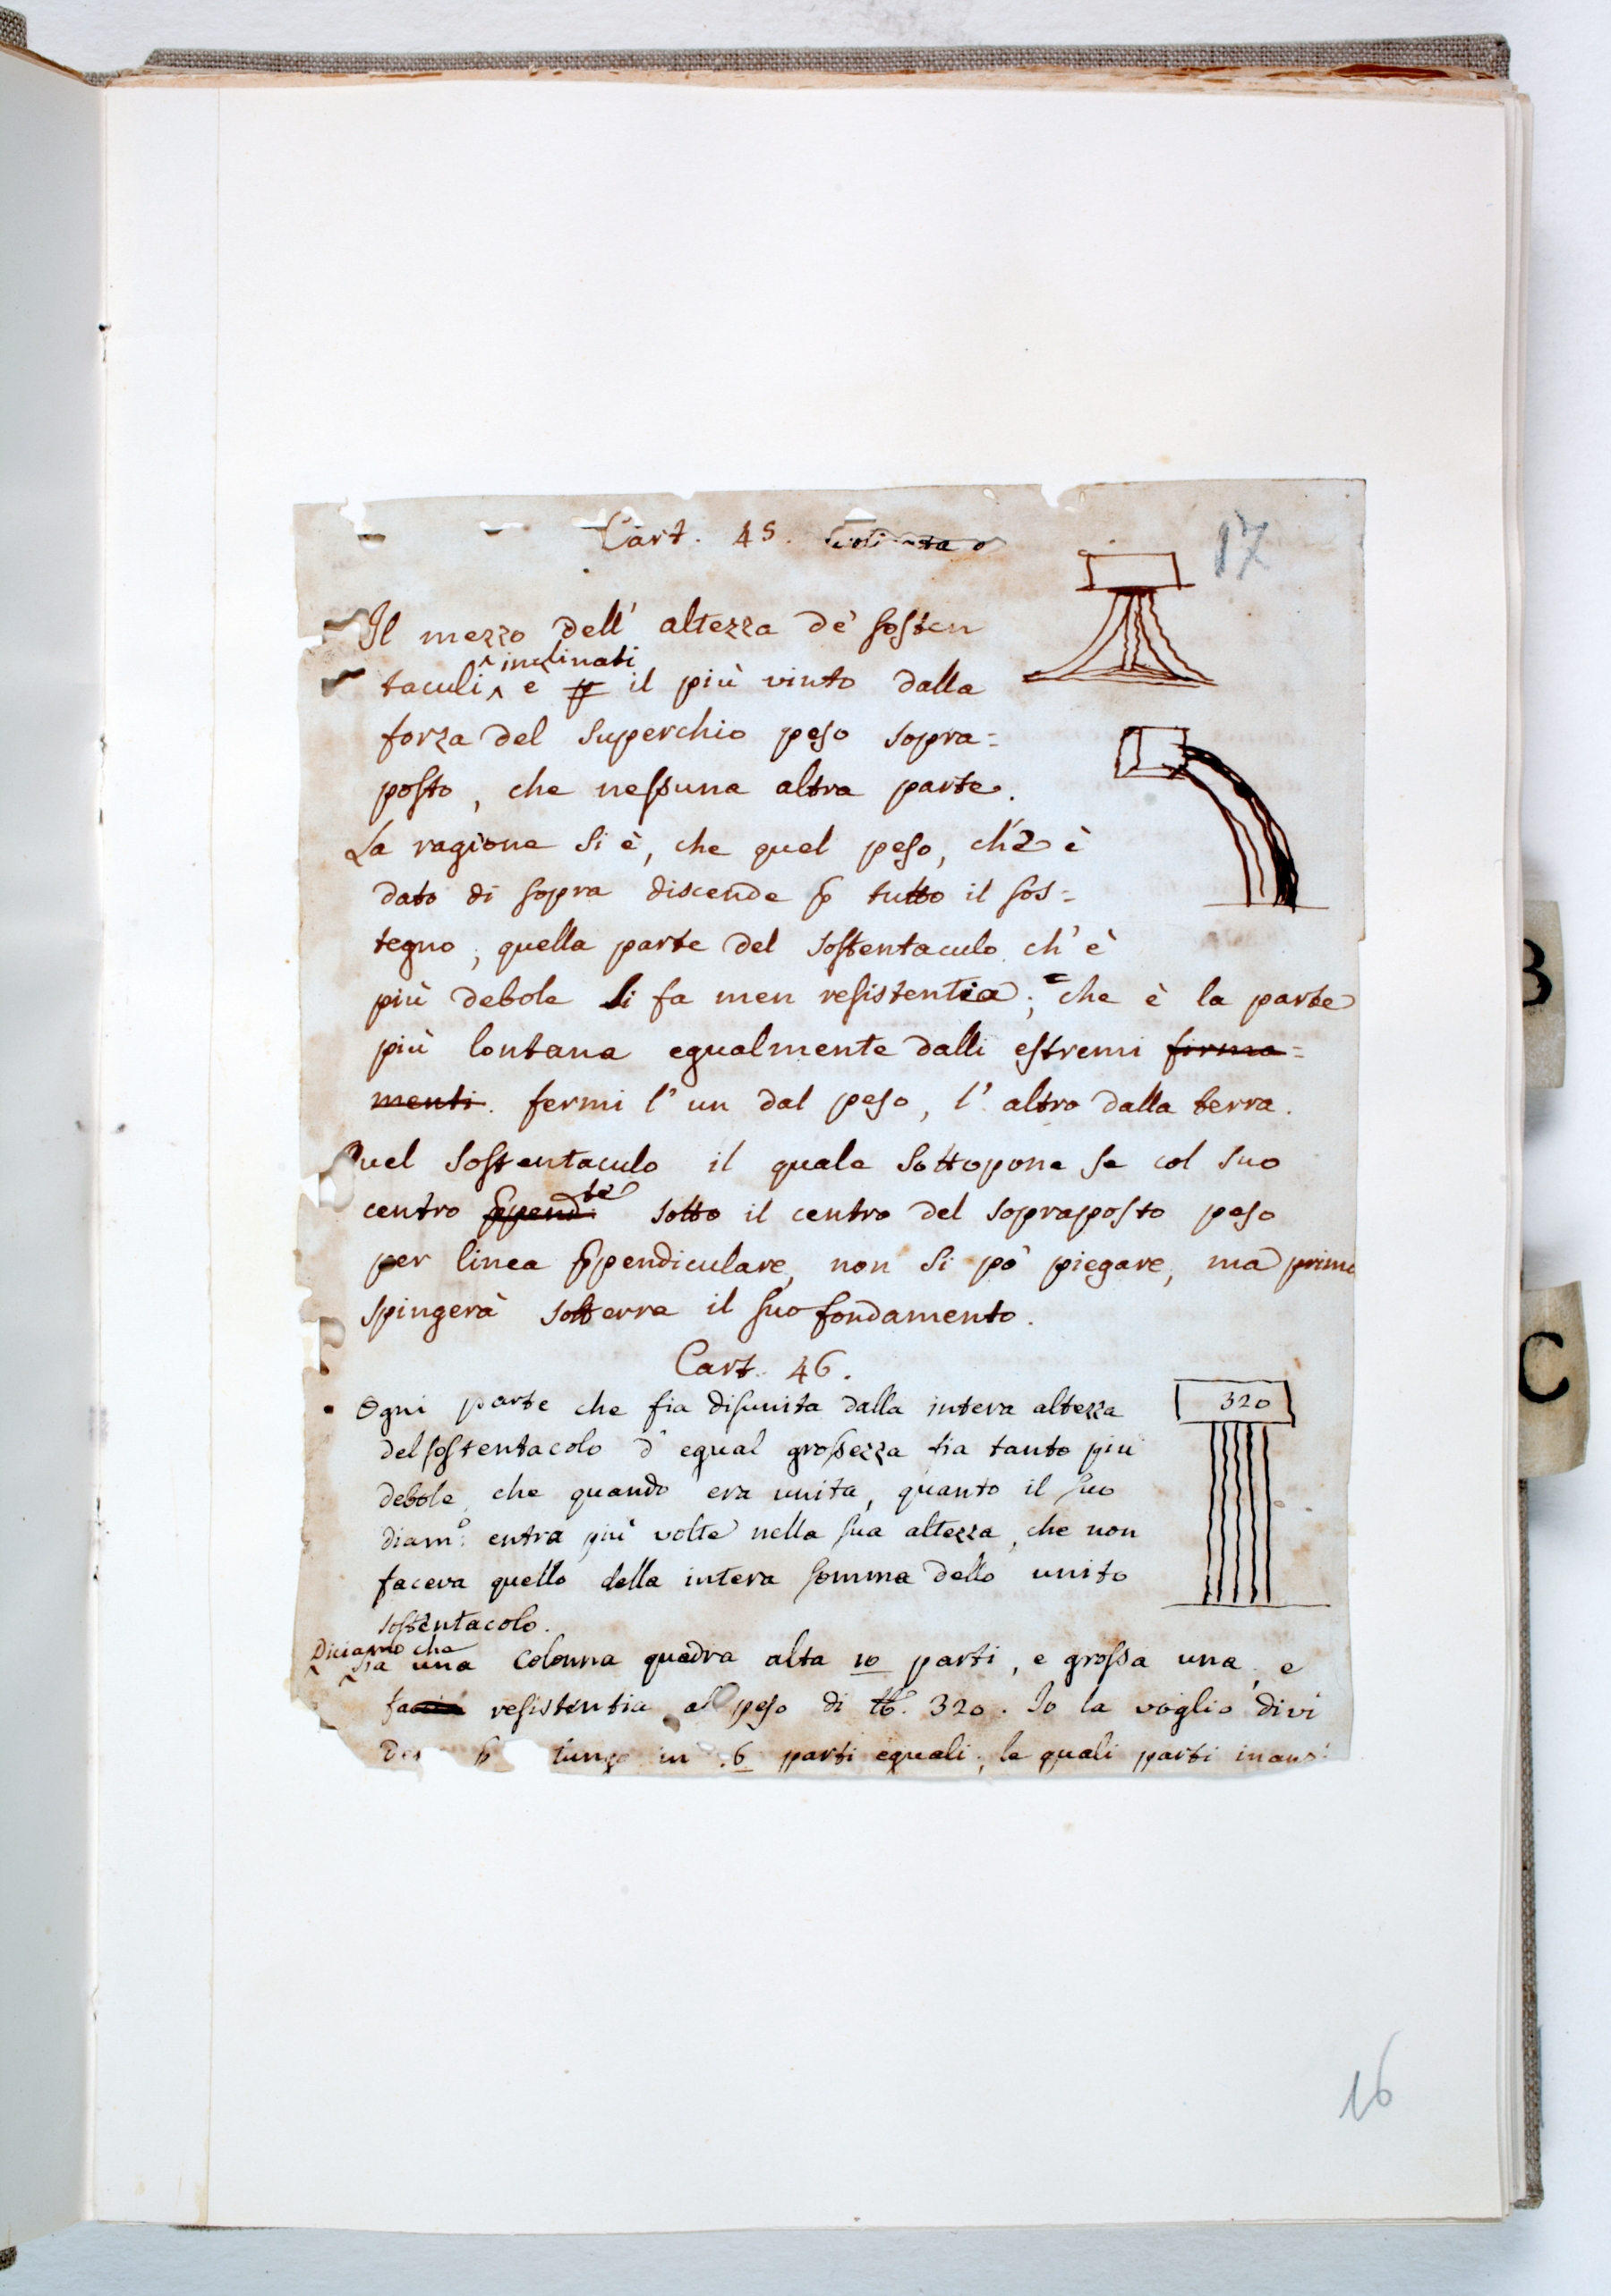 Cart. 45.
17
Il mezzo dell' altezza de' sosten
inclinati
taculi è p il più vinto dalla
forza del superchio peso sopra=
posto, che nessuna altra parte.
La ragione si è, che quel peso, ch'è
dato di sopra discende p tutto il sos=
tegno; quella parte del sostentaculo ch'è
più debole si fa men resistentia; che è la parte
più lontana egualmente dalli estremi firma=
menti. fermi l' un dal peso, l' altro dalla terra.
Quel sostentaculo il quale sottopone se col suo
te
centro ppend. sotto il centro del sopraposto peso
per linea ppendiculare, non si pò piegare, ma prima
spingerà sotterra il suo fondamento.
Cart. 46.
Ogni parte che fia disunita dalla intera altezza
320
del sostentacolo d' egual grossezza fia tanto più
debole, che quando era unita, quanto il suo
diam.o entra più volte nella sua altezza, che non
faceva quello della intera somma dello unito
sostentacolo.
Diciamo che
sia una Colonna quadra alta 10 parti, e grossa una, e
resistentia al peso di ℔. 320. Io la voglio divi
p lungo in .6. parti equali; le quali parti
16
B
C